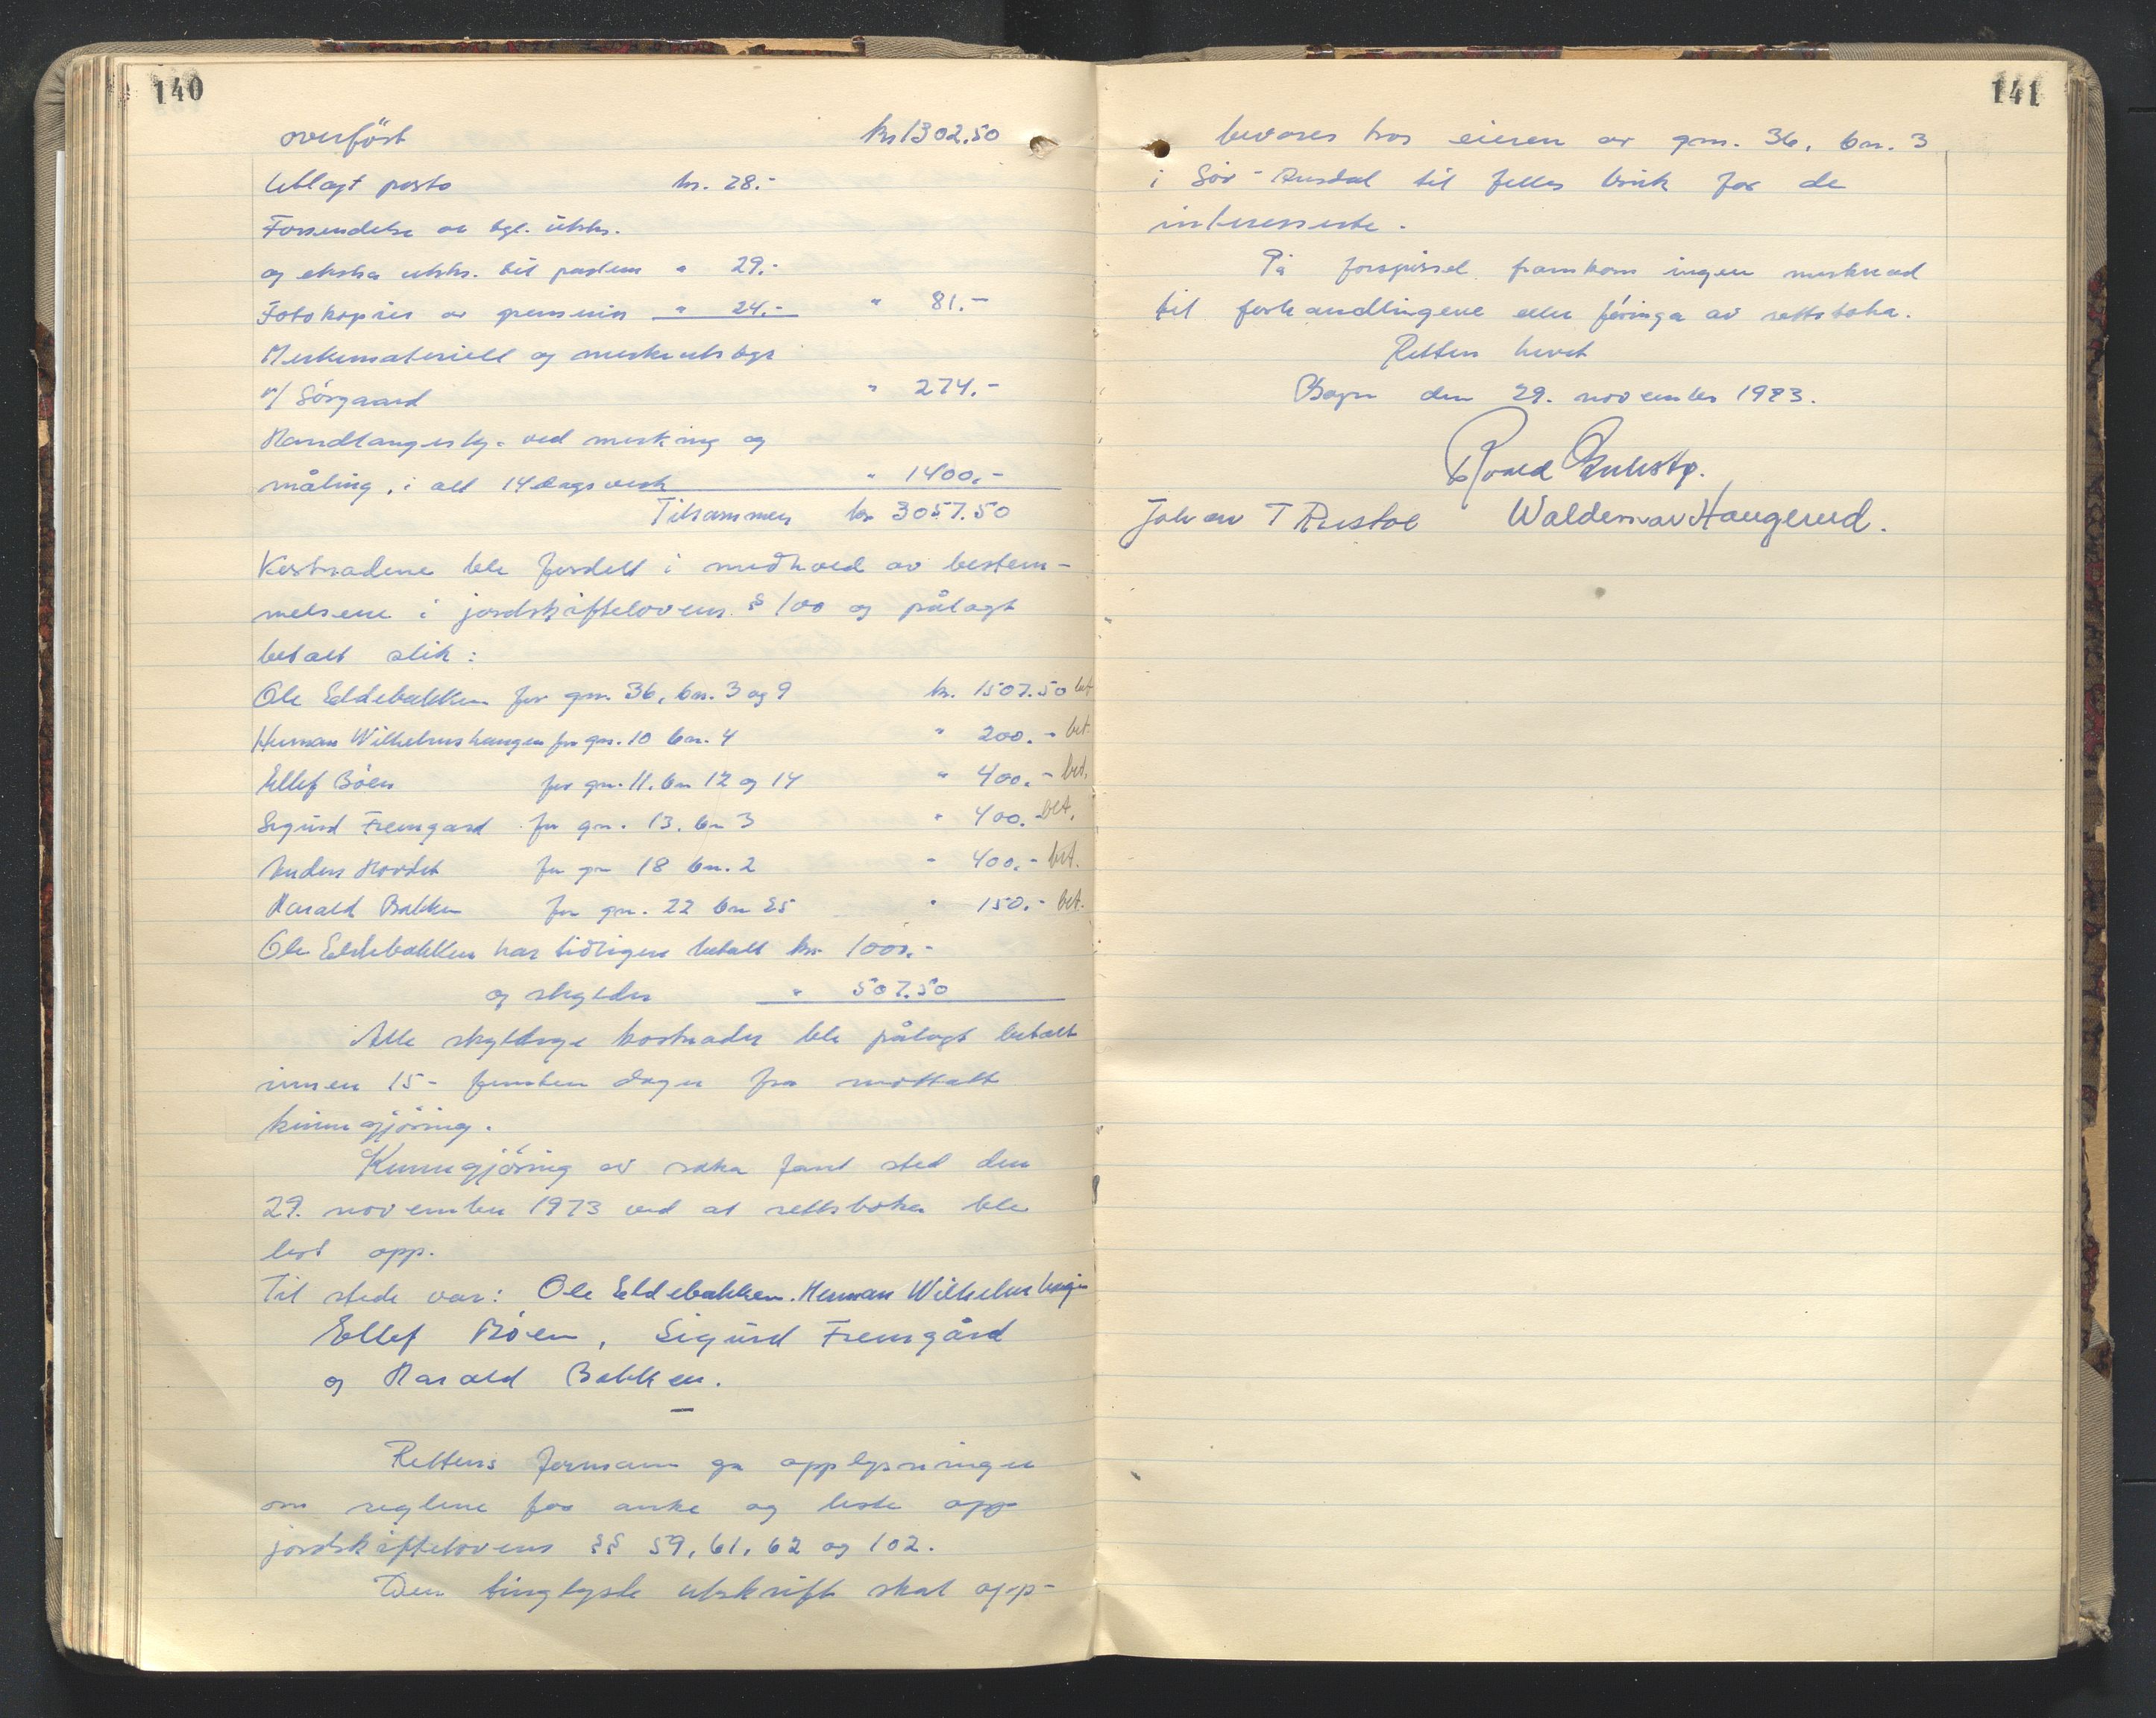 140
overført kr 1302.50
Utlagt porto kr. 28.-
Forsendelse av tgl. utskr.
og ekstra utskr. til partene " 29.-
Fotokopier av grenseriss " 24.- " 81.-
Merkemateriell og merkeutstyr
v/ Sørgaard " 274.-
Handlangerhj. ved merking og
måling, i alt 14 dagsverk " 1400.-
Tilsammen kr 3057.50
Kostnadene ble fordelt i medhold av bestem-
melsene i jordskiftelovens § 100 og pålagt
betalt slik:
Ole Eldebakken for gnr. 36, bnr. 3 og 9 kr. 1507.50 bet
Herman Wilhelmshaugen for gnr. 10 bnr. 4 " 200.- bet.
Ellef Bøen for gnr. 11. bnr 12 og 14 " 400.- bet.
Sigurd Fremgard for gnr. 13. bnr 3 " 400.- bet.
Anders Hovdet for gnr 18 bnr. 2 " 400.- bet.
Harald Bakken for gnr. 22 bnr 25 " 150.- bet.
Ole Eldebakken har tidligere betalt kr. 1000.-
og skylder " 507.50
Alle skyldige kostnader ble pålagt betalt
innen 15- femten dager fra mottatt
kunngjøring.
Kunngjøring av saka fant sted den
29. november 1973 ved at rettsboka ble
lest opp.
Til stede var: Ole Eldebakken. Herman Wilhelmshaugen
Ellef Bøen, Sigurd Fremgård
og Harald Bakken.
Rettens formann ga opplysninger
om reglene for anke og leste opp
jordskiftelovens §§ 59, 61, 62 og 102.
Den tinglyste utskrift skal opp-
141
bevares hos eieren av gnr. 36, bnr. 3
i Sør-Aurdal til felles bruk for de
interesserte.
På forespørsel framkom ingen merknad
til forhandlingene eller føringa av rettsboka.
Retten hevet
Bagn den 29. november 1973.
Johan T Rustad Waldemar Haugerud.